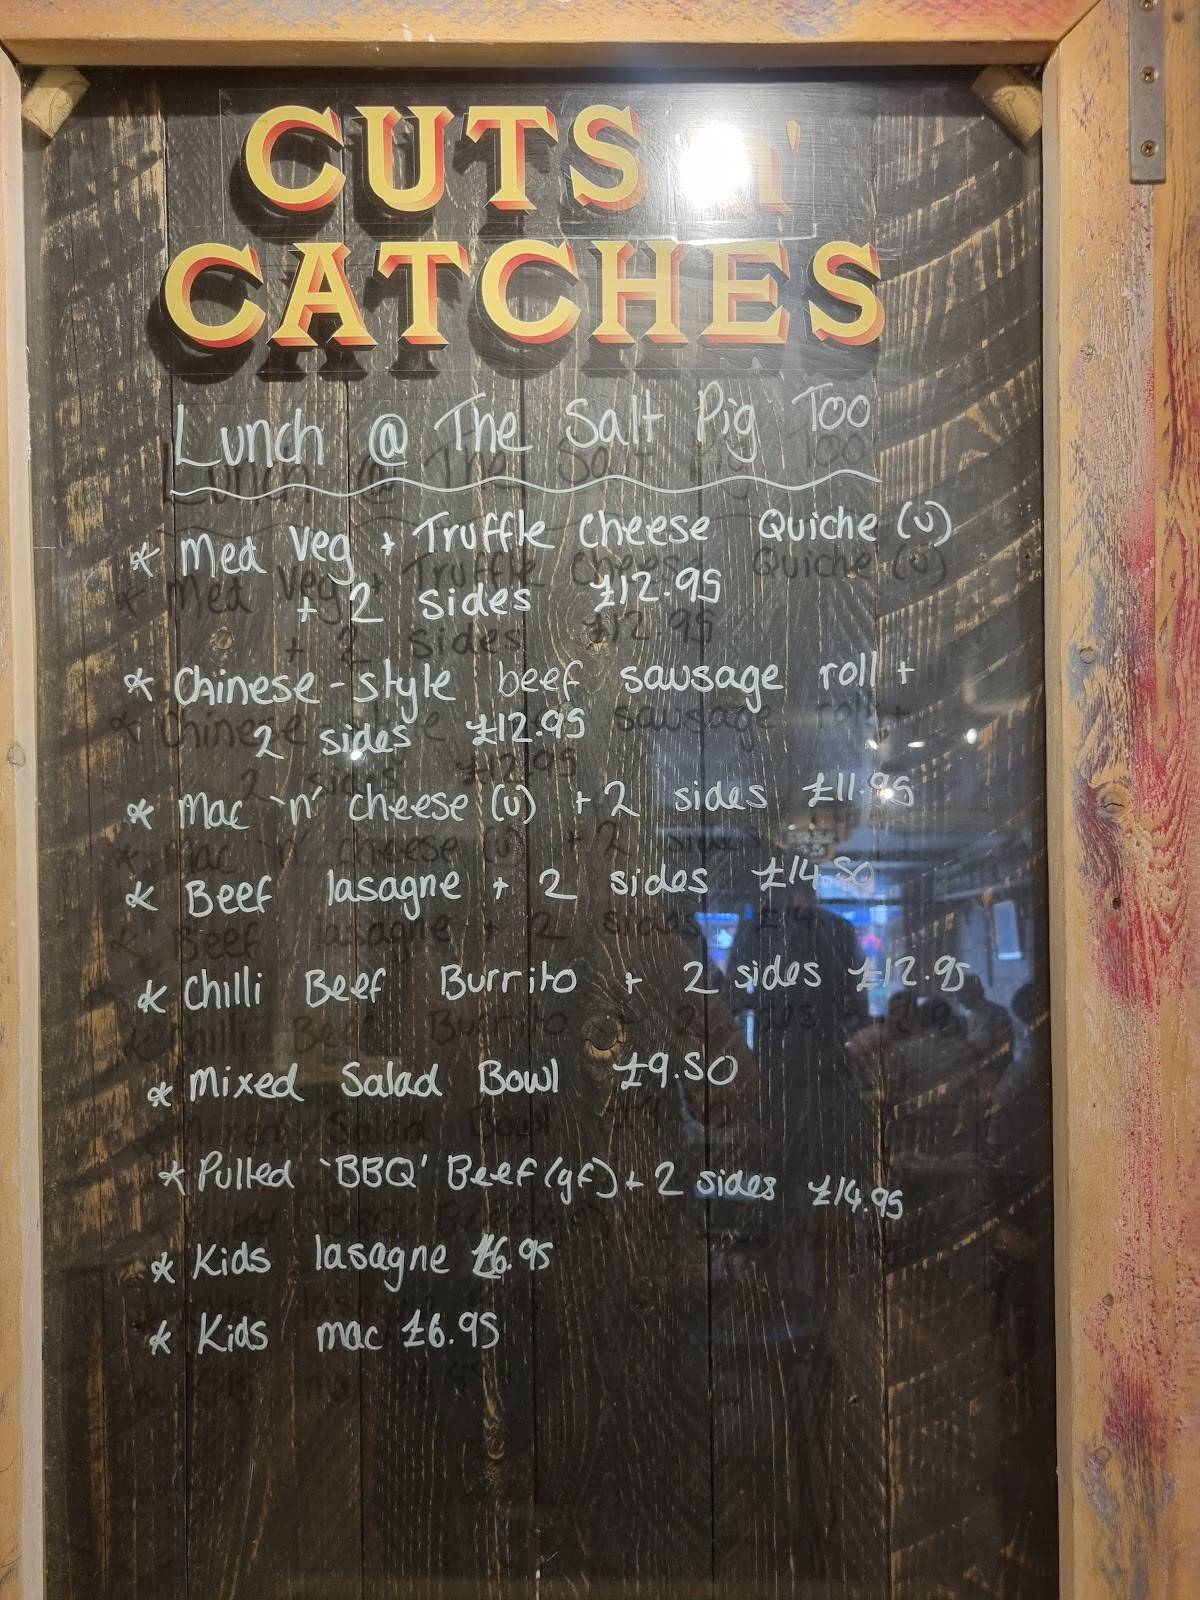 CUTS n'
CATCHES
Lunch @ The Salt Pig Too
* Med Veg + Truffle Cheese Quiche (v)
+ 2 sides £12.95
* Chinese-style beef sausage roll +
2 sides £12.95
* Mac 'n' cheese (v) + 2 sides £11.95
* Beef lasagne + 2 sides £14.50
* Chilli Beef Burrito + 2 sides £12.95
* Mixed Salad Bowl £9.50
* Pulled 'BBQ' Beef (gf) + 2 sides £14.95
* Kids lasagne £6.95
* Kids mac £6.95